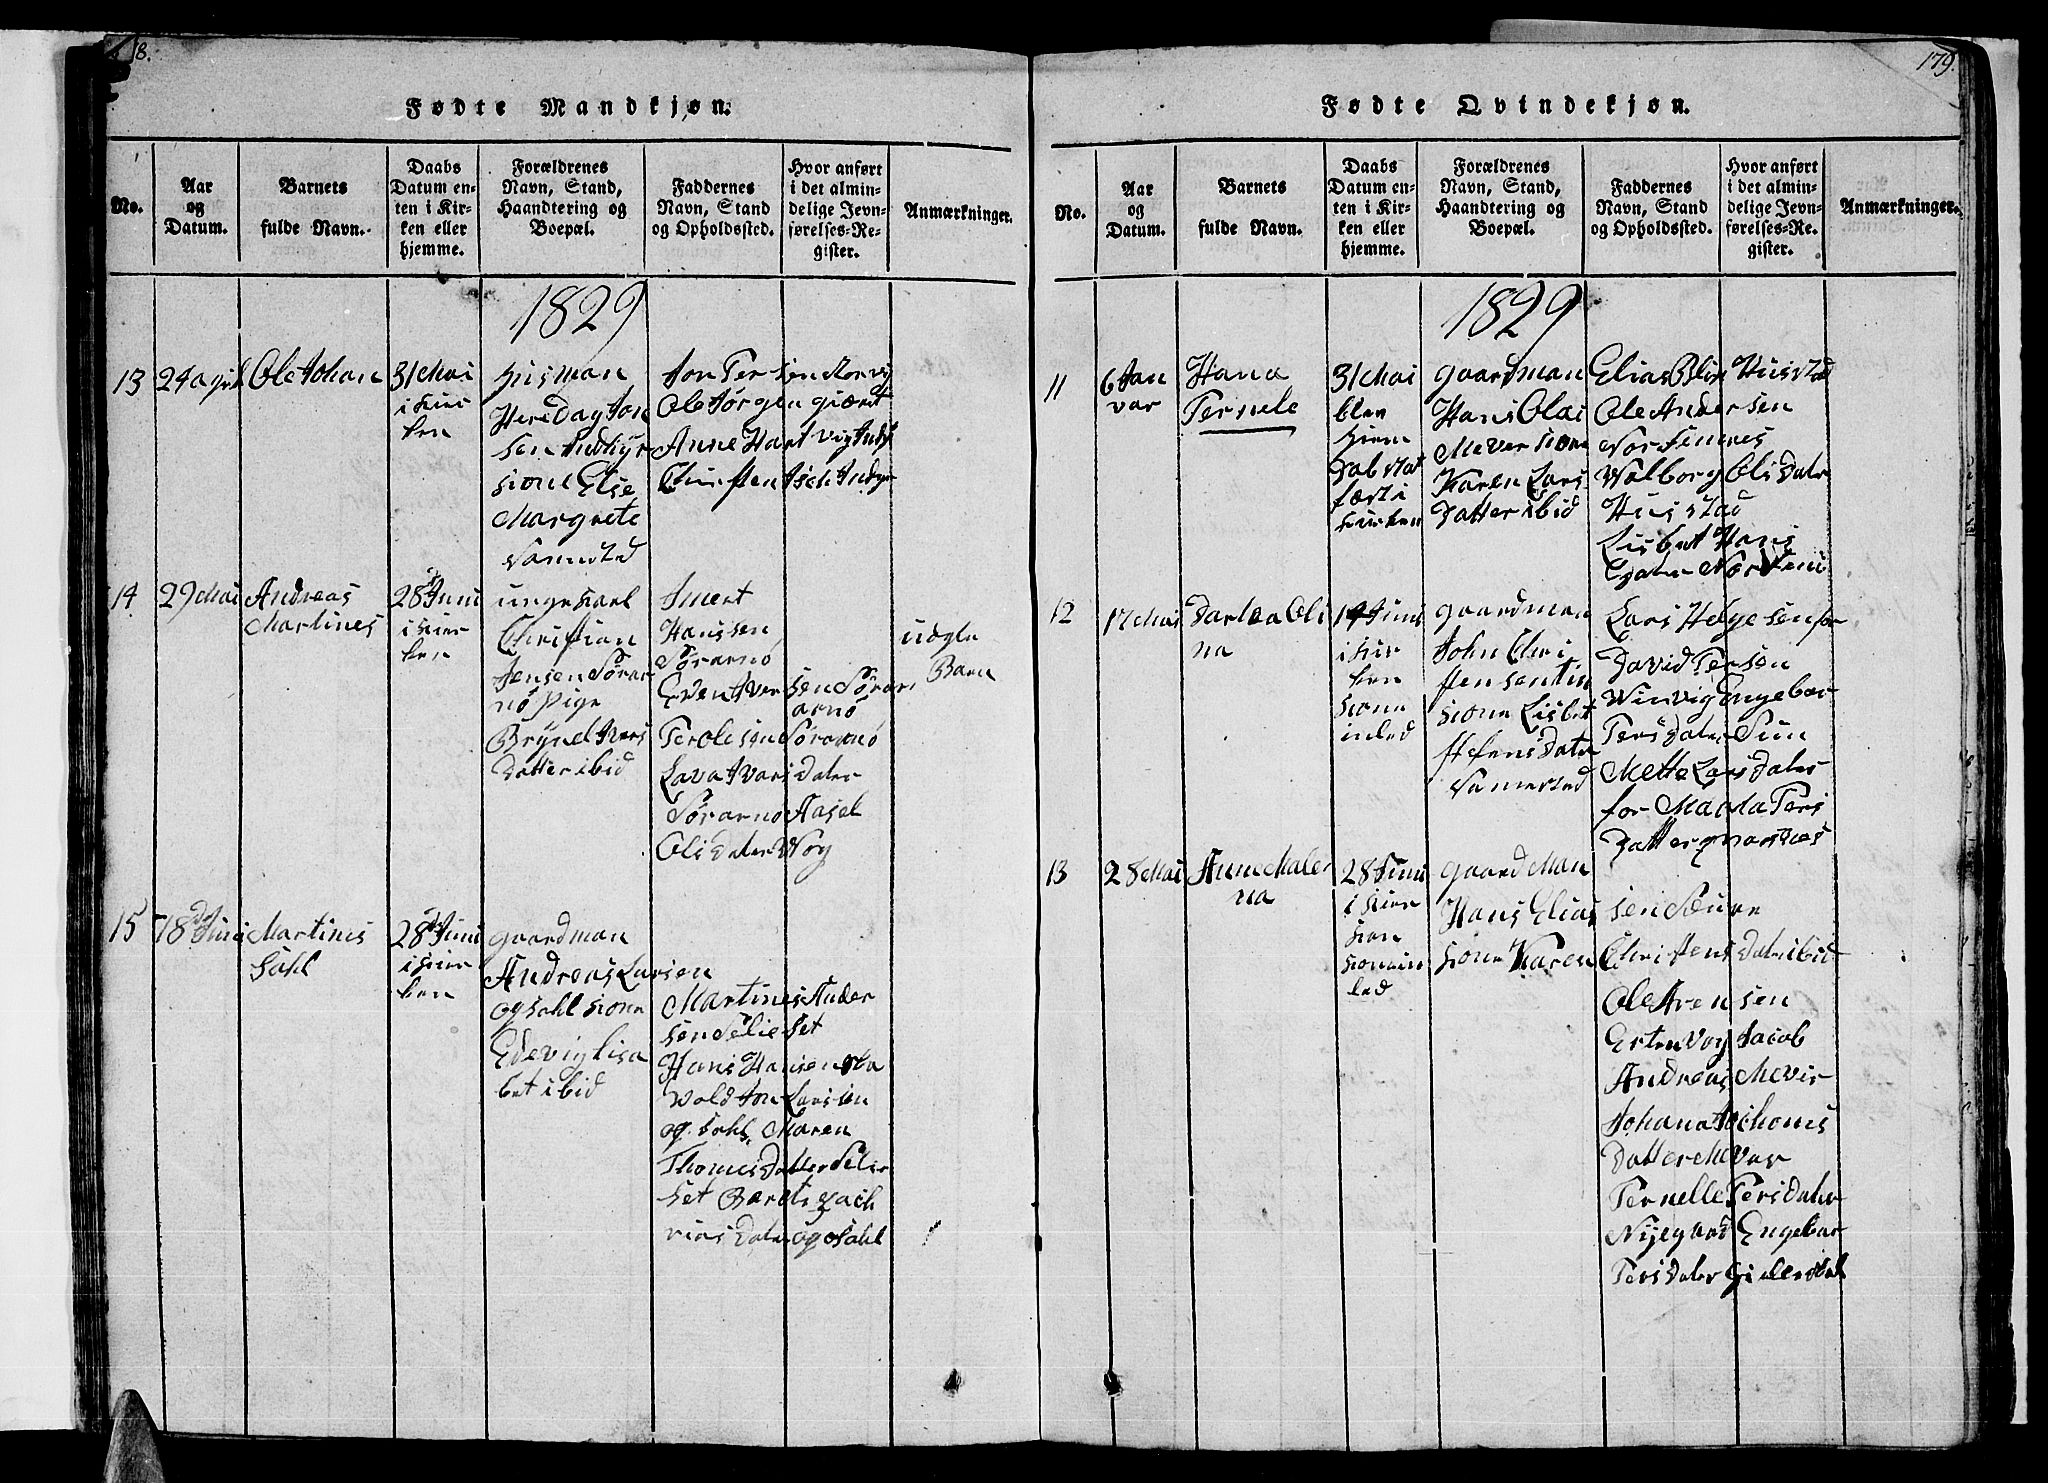 8.
Fødte Mandkjøn.
No.
Aar
og
Datum.
Barnets
fulde Navn.
Daabs
Datum en-
ten i Kir-
ken eller
hjemme.
Forældrenes
Navn, Stand,
Haandtering og
Boepæl.
Faddernes
Navn, Stand
og Opholdssted.
Hvor anført
i det almin-
delige Jevn-
førelses-Re-
gister.
Anmærkninger.
1829
13
24 april
Ole Johan
31 Mai
i kier
ken
husman
Dag Jon
sen
kone Else
Margrete
Jon Per sen
Ole Jørgen
Anne Hart vig
Christen
14
29 Mai
Andreas
Martines
28 Juni
i kier
ken
unge karl
Christian
Jensen Sørar
nø Pige
Brynel Ivers
Datter ibid
Hanssen
Sørarnø
Even Iver sen Sørar
arnø
Per Olesøn Sørarnø
Lava Ivars Dater
Sørarnø Aasel
Olis Dater Vog
uægte
Barn
15
18 Juni
Martines
Dahl
28 Juni
i kier
ken
gaardman
Andreas Larsen
opsahl kone
Edevig Lisa
bet ibid
Martines Ander
sen Selie set
Hans Hansen
vold Jon Larsen
opsahl, Maren
Thomes datter Selie
set Beret Zach
rias Dater opsahl
179.
Fødte Qvindekjøn.
No.
Aar
og
Datum.
Barnets
fulde Navn.
Daabs
Datum en-
ten i Kir-
ken eller
hjemme.
Forældrenes
Navn, Stand,
Haandtering og
Boepæl.
Faddernes
Navn, Stand
og Opholdssted.
Hvor anført
i det almin-
delige Jevn-
førelses-Re-
gister.
Anmærkninger.
1829
11
6 Jan
var
Hana
Pernele
31 Mai
blev
hiem
Dab stat
fæst i
kirken
gaardman
Hans Olai
Mever kone
Karen Lars
Datter ibid
Elias Blix Husstad
Ole Andersen
Valborg Olis Dater
Husstad
Lisbet Hans
12
17 Mai
Dortea Oli
na
14 Juni
i kir
ken
kone
inled
gaardman
John Chri
stensen
kone Lisbet
Stefens Dater
Lars Helgesen for
David Persen
Engebor
Pers Dater
Mette Lars Dater
for Magda Pers
Datter
13
28 Mai
Anne Male
na
28 Juni
i kier
ken
konen in
led
gaard Man
Hans Elias sen
kone Karen Christens Dater ibid
Ole Arensen
Vog Jacob
Andreas Mevir
Johana Jochoms
Datter Mever
Pernelle Pers Dater
Nijegaard Engebor
Pers Dater